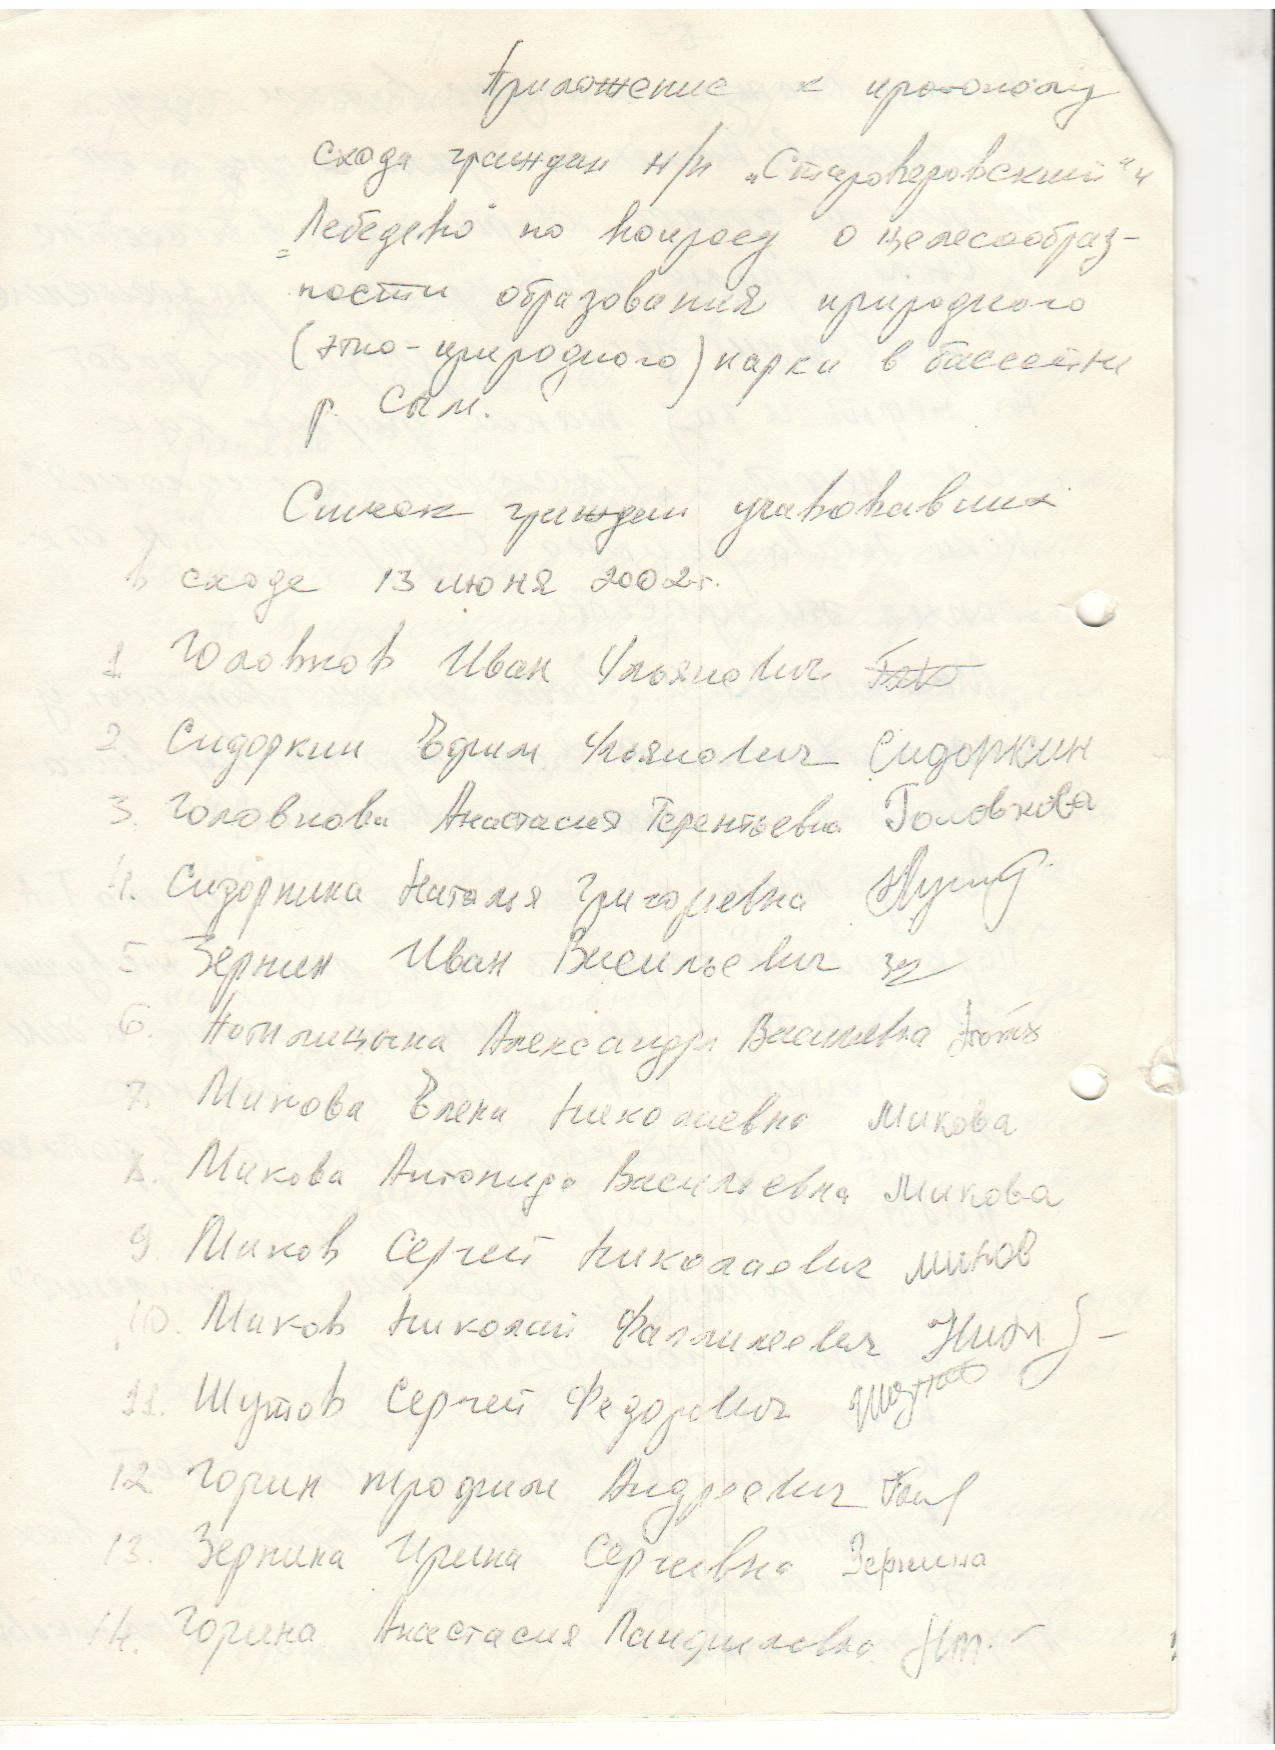 Приложение к протоколу
схода граждан н/п „Староверовский" и
„Лебедево" по вопросу о целесообраз-
ности образования природного
(этно-природного) парка в бассейне
р. Сым.
Список граждан учавовавших
в сходе 13 июня 2002 г.
1 Головков Иван Ульянович
2 Сидоркин Ефим Ульянович Сидоркин
3. Головкова Анастасия Терентьевна Головкова
4. Сидоркина Наталья Григорьевна
5 Зеркин Иван Васильевич
6. Александра Васильевна
7. Микова Елена Николаевна Микова
8. Микова Антонида Васильевна Микова
9. Миков Сергей Николаевич Миков
10. Миков Николай Фаллилеевич
11. Шутов Сергей Федорович
12 Горин Трофим Андреевич
13. Зеркина Ирина Сергеевна Зеркина
14. Горина Анастасия Панфиловна